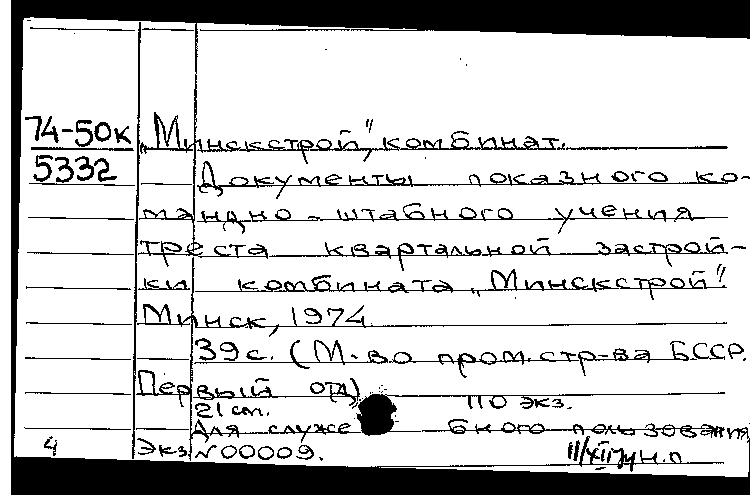 74-50к
5332
„Минскстрой", комбинат.
Документы показного ко-
мандно-штабного учения
треста квартальной застрой-
ки комбината „Минскстрой".
Минск, 1974
39с. (М-во пром. стр-ва БССР.
Первый отд)
21 cm. 110 экз.
Для служебного пользования
4 Экз N00009. 11/XII74 н.п